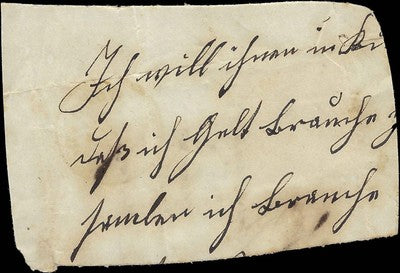 Ich will ihnen in Ki
daß ich Gelt brauche
samlen ich brauche